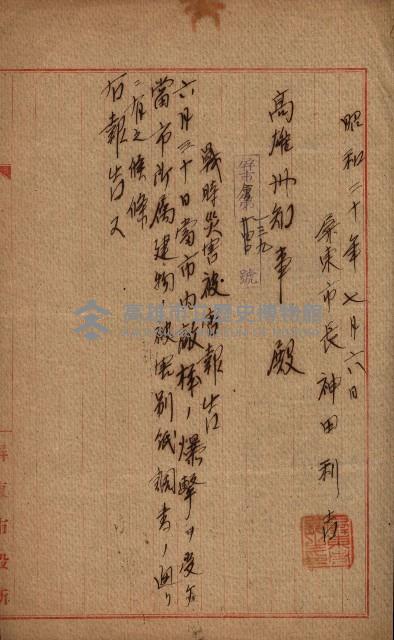 昭和二十年七月六日
屏東市長 神田利吉
高雄州知事殿
屏市庶第一三九號
戰時災害被害報告
六月三十日當市内敵機ノ爆擊ヲ受ケ
當市所屬建物ノ被害別紙調書ノ通リ
ニ有之候條
右報告ス
高雄市立歷史博物館
屏東市役所